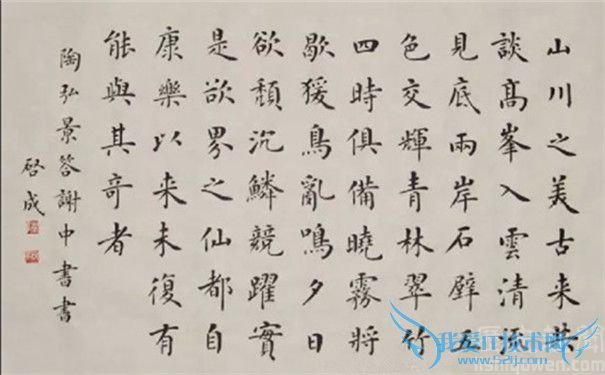 山川之美古来共
談高峯入雲清流
見底兩岸石壁五
色交輝青林翠竹
四時俱備曉霧將
歇猨鳥亂鳴夕日
欲頹沉鱗競躍實
是欲界之仙都自
康樂以来未復有
能與其奇者
陶弘景答謝中書書
啓成
我爱IT技术网
www.52ij.com
lishiquwen.com